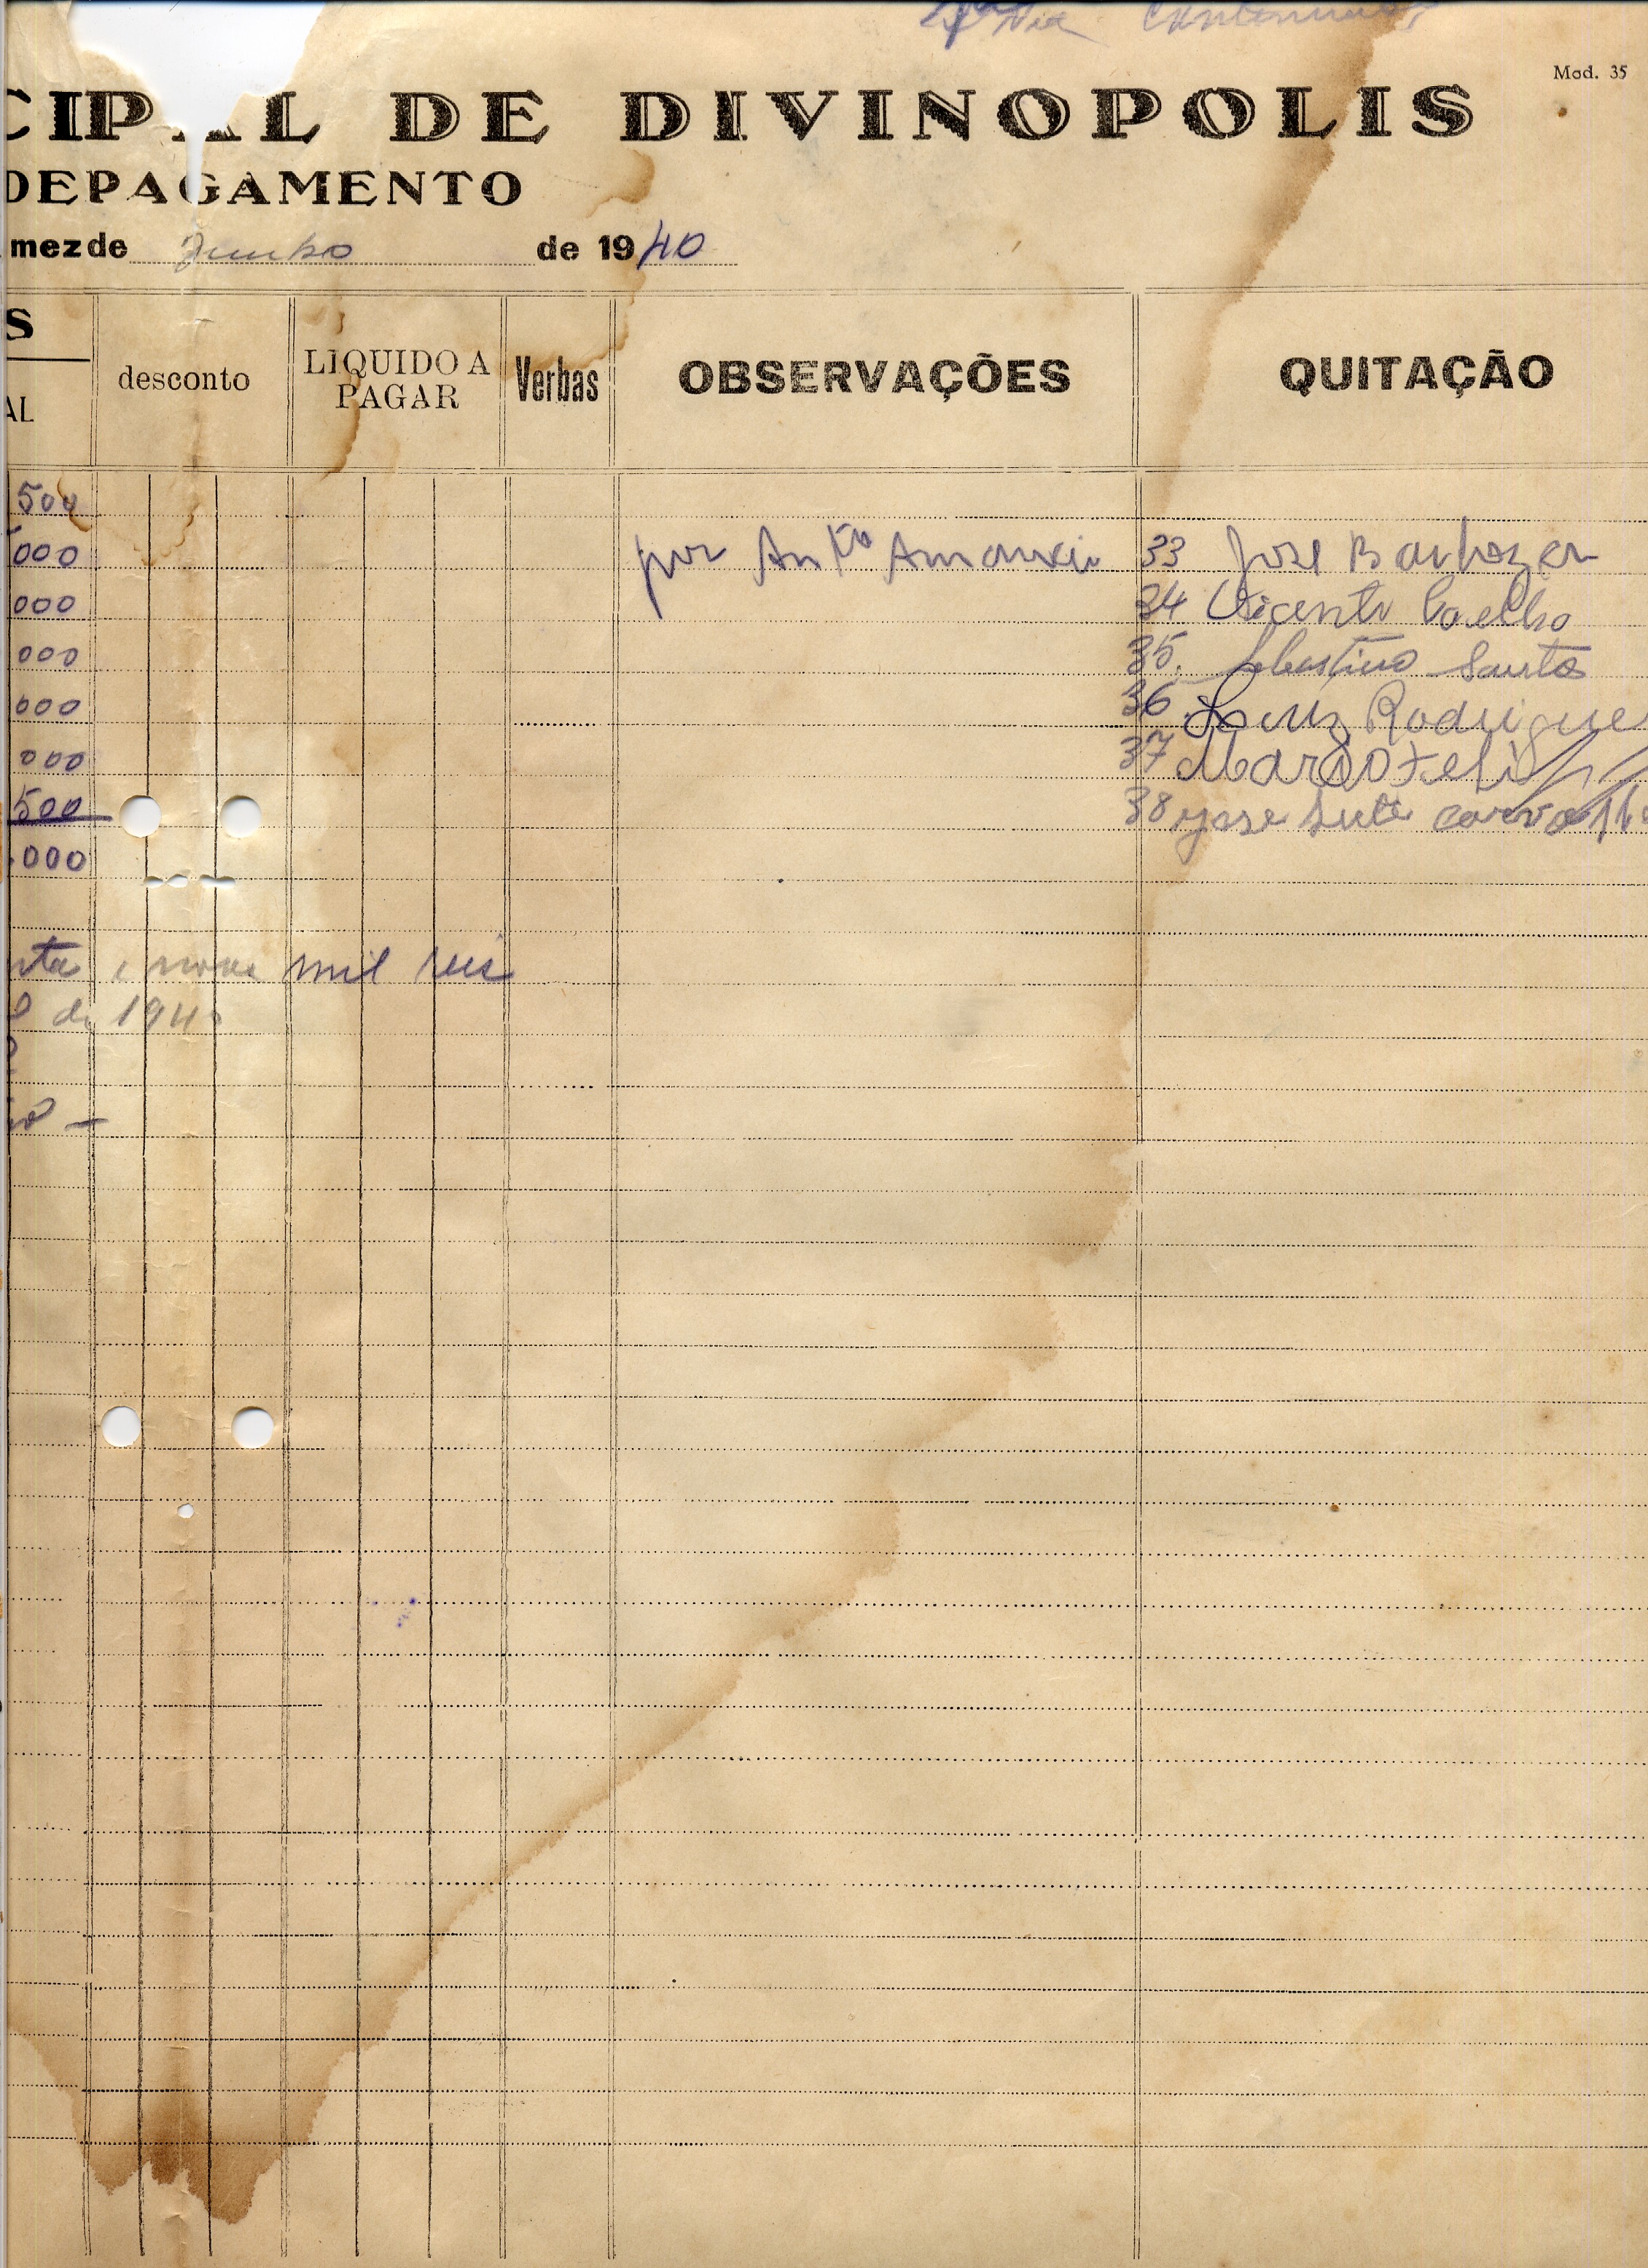 2ª Via
Mod. 35
CIPAL DE DIVINOPOLIS
DE PAGAMENTO
mez de Junho de 1940
S
AL
desconto
LIQUIDO A PAGAR
Verbas
OBSERVAÇÕES
QUITAÇÃO
500
000 por Antº 33 José Barboza
000 34 Vicente Coelho
000 35. Sebastião Santos
000 36 Luiz Rodrigues
000 37 Mario Felix
500 38 carvalho
000
nta e nove mil reis
de 1940